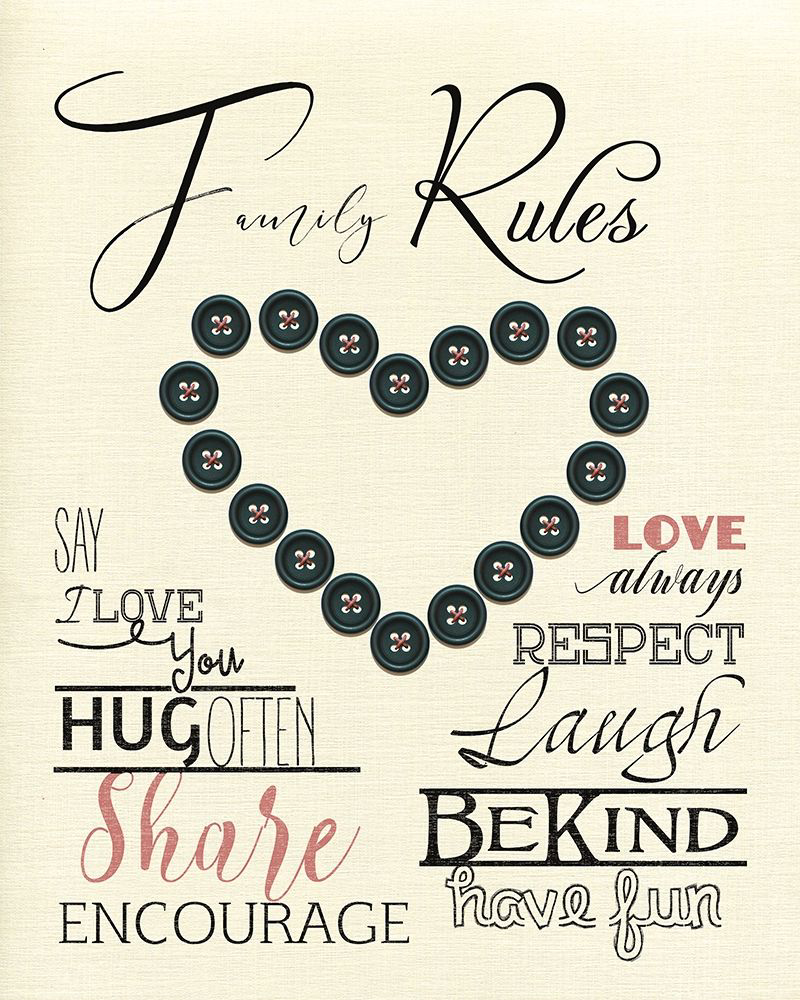 Family Rules
SAY
I LOVE
You
HUG OFTEN
Share
ENCOURAGE
LOVE
always
RESPECT
Laugh
BE KIND
have fun